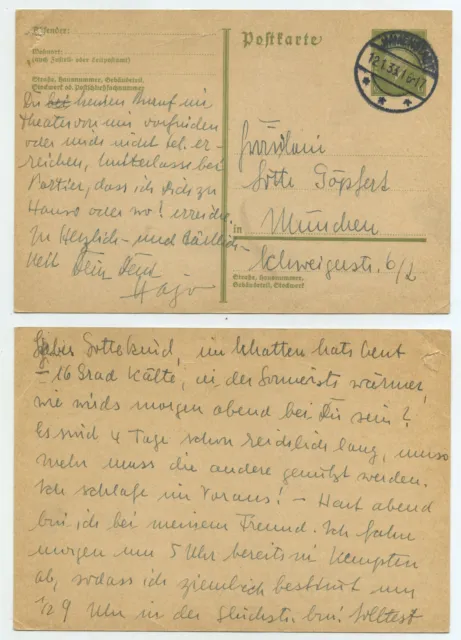 Absender:
Wohnort:
(auch Zustell- oder Leitpostamt)
Straße, Hausnummer, Gebäudeteil,
Stockwerk od. Postschließfachnummer
Postkarte
12.1.33.16-17
Du bei keinen Anruf im
Theater von mir vorfinden
oder mich nicht tel. er-
reichen, hinterlasse bei
Portier, dass ich Dich zu
Hause oder wo? erreiche.
In Herzlich- und Zärtlich-
keit Dein Dein
Hajo
Fräulein
Lotte Töpfert
in München
Schweigerstr. 6/2
Straße, Hausnummer,
Gebäudeteil, Stockwerk
Liebes Gotteskind, im Schatten hats heut
– 16 Grad Kälte, in der Sonne ists wärmer,
wie wirds morgen abend bei Dir sein?
Es sind 4 Tage schon reichlich lang, umso
mehr muss die andere genützt werden.
Ich schlafe im Voraus! – Heut abend
bin ich bei meinem Freund. Ich fahre
morgen um 5 Uhr bereits in Kempten
ab, sodass ich ziemlich bestimmt um
1/2 9 Uhr in der Glückstr. bin! Solltest